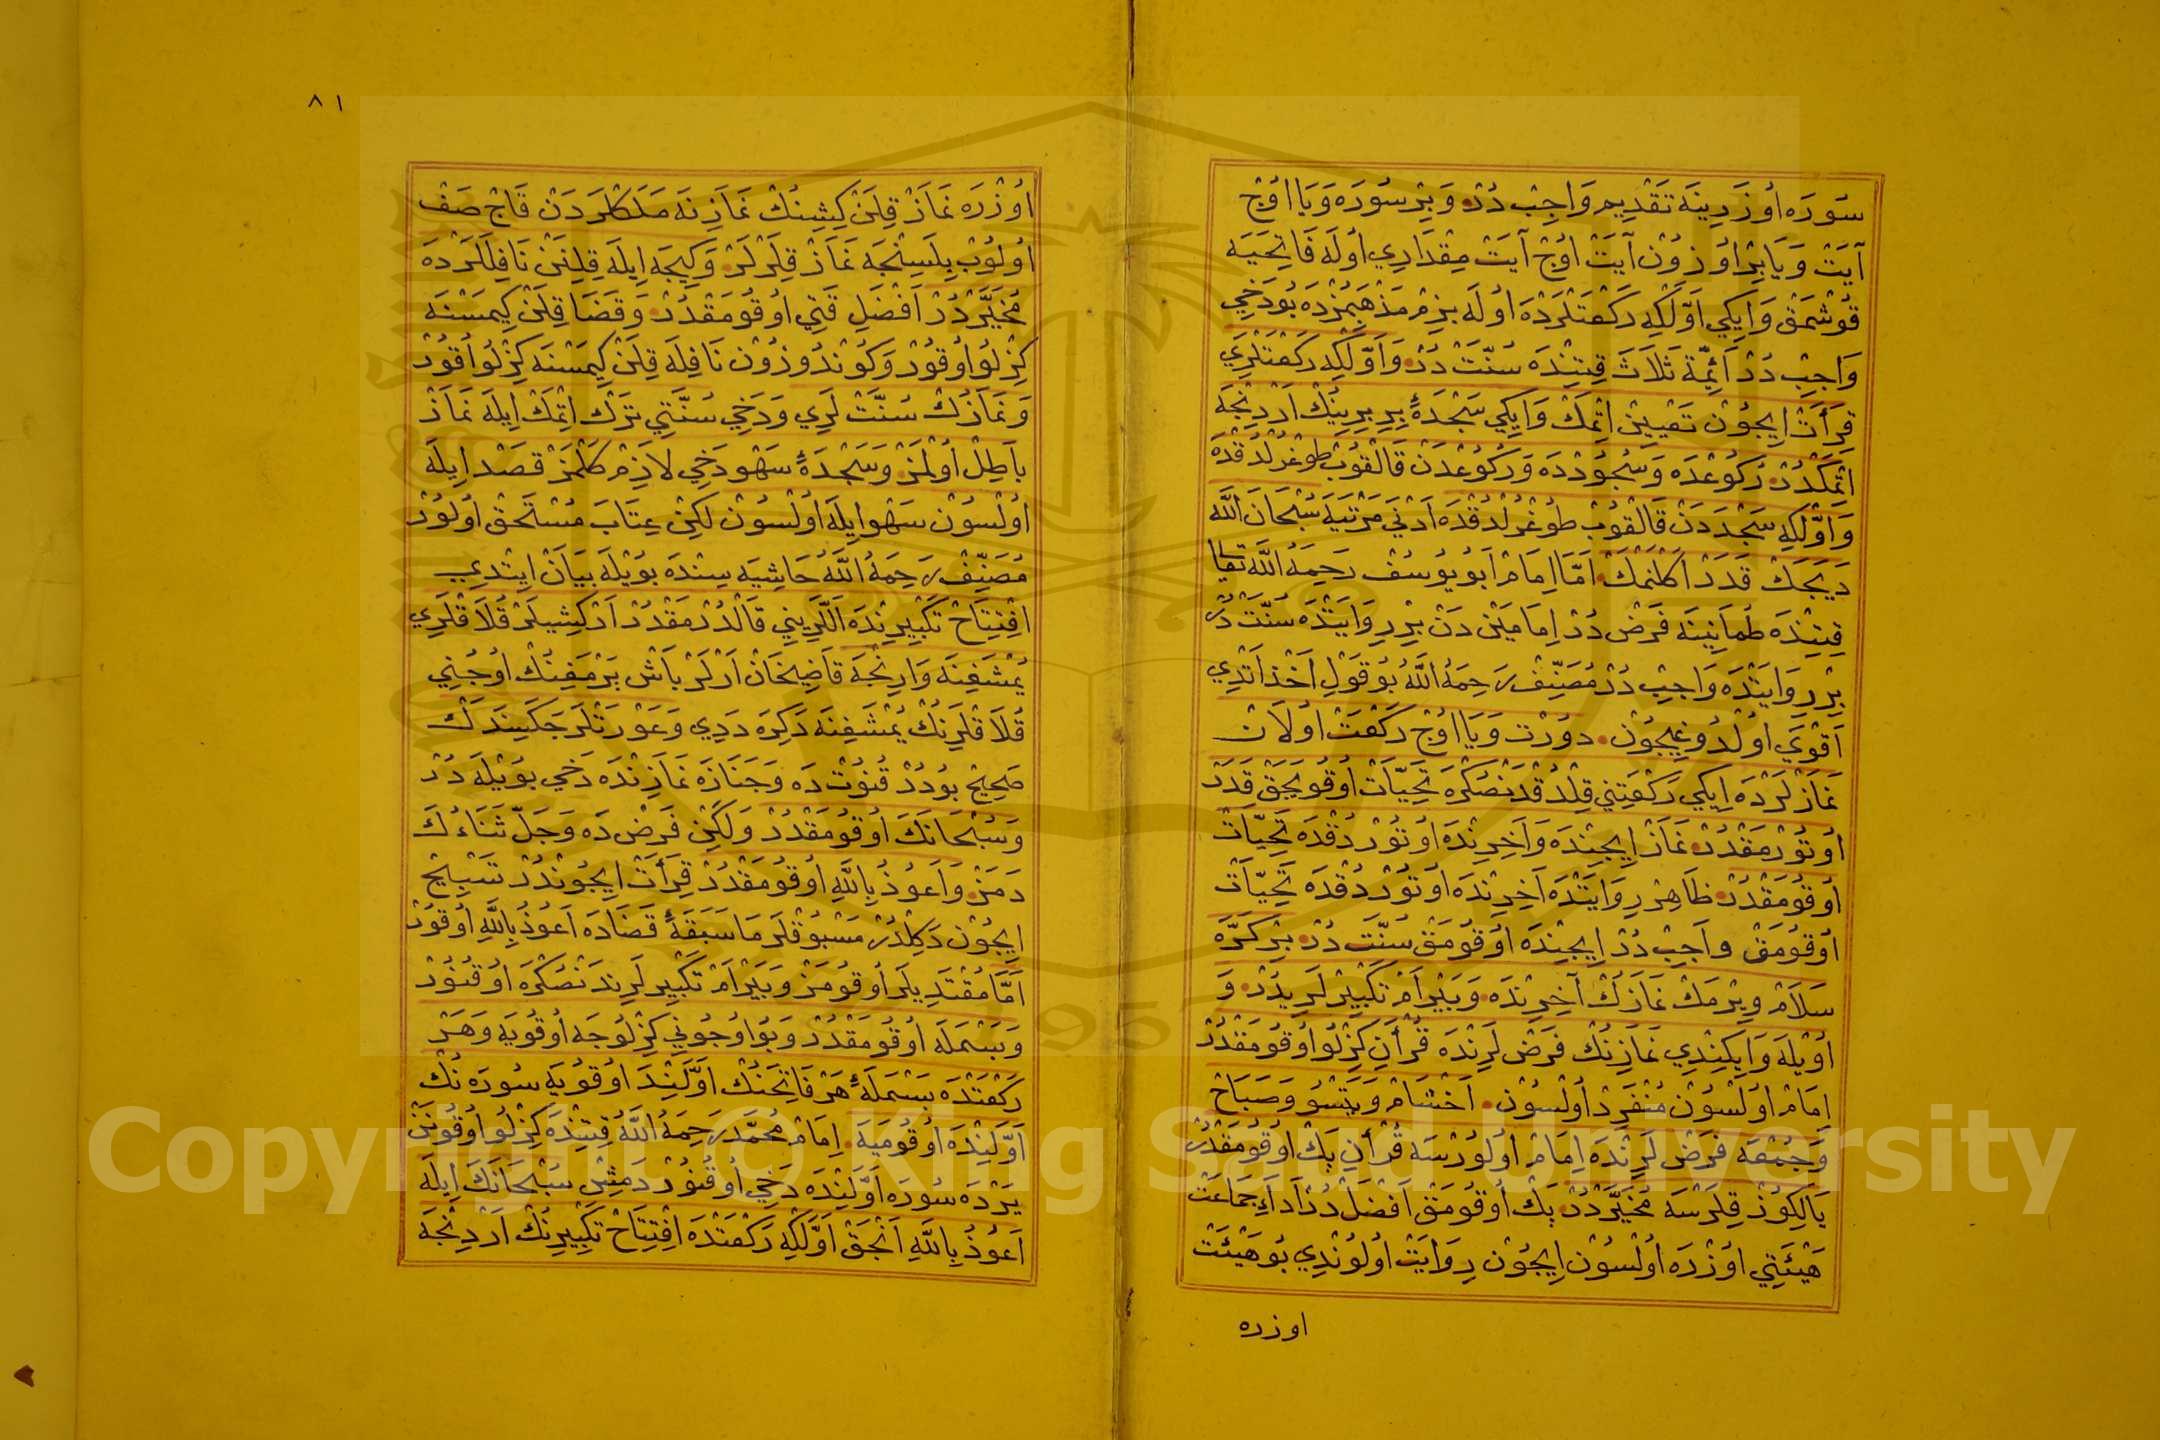 سُورَه اُوزَرِينَه تَقْدِيم وَاجِب دُرْ وَبِرْ سُورَه وَيَا اُوْجْ
آيَتْ وَيَا بِرْ اُوزُونْ آيَتْ اُوْجْ آيَتْ مِقْدَارِي اُولَه فَاتِحَيَه
قُوشْمَقْ وَايكِي اَوَّلْكِه رَكْعَتْلَرْدَه اُولَه بِزِمْ مَذْهَبِمُزْدَه بُودَخِي
وَاجِبْ دُرْ اَئِمَّةِ ثَلَاثَه قِتِنْدَه سُنَّتْ دُرْ وَاَوَّلْكِه رَكْعَتْلَرِي
قِرَأَتْ اِيجُونْ تَعْيِينْ اِتْمَكْ وَايكِي سَجْدَهءْ بِرِ بِرِينِكْ اَرْدِنْجَه
اِتْمَكْدُرْ رُكُوعْدَه وَسُجُودْدَه وَرُكُوعْدَنْ قَالْقُوبْ طُوغْرُلْدُقْدَه
وَاوَّلْكِه سَجْدَدَنْ قَالْقُوبْ طُوغْرُلْدُقْدَه اَدْنَي مَرْتَبَه سُبْحَانَ اللَّه
دَيَجَكْ قَدَرْ اَكْلَنْمَكْ اَمَّا اِمَامْ اَبُو يُوسُفْ رَحِمَهُ اللَّه تعالى
قِتِنْدَه طُمَانِينَه فَرْضْ دُرْ اِمَامَيْنْ دَنْ بِرْ رِوَايَتْدَه سُنَّتْ دُرْ
بِرْ رِوَايَتْدَه وَاجِبْ دُرْ مُصَنِّفْ رَحِمَهُ اللَّهُ بُو قَوْلِ اَخْذ اَتْدِي
اَقْوَي اُولْدُوغِيجُونْ دورْت وَيَا اُوْج رَكْعَتْ اُولَانْ
نَمَازْلَرْدَه اِيكِي رَكْعَتِنِي قِلْدُقْدَنْصُكْرَه تَحِيَّاتْ اُوقُويَجَقْ قَدَرْ
اُوتُورْمَقْدُرْ نَمَازْ اِيجِنْدَه وَآخِرِنْدَه اُوتُورْدُقْدَه تَحِيَّاتْ
اُوقُومَقْدُرْ ظَاهِرْ رِوَايَتْدَه آخِرِنْدَه اُوتُورْدُقْدَه تَحِيَّاتْ
اُوقُومَقْ وَاجِبْ دُرْ اِيجِنْدَه اُوقُومَقْ سُنَّتْ دُرْ بِرْ كَرَّه
سَلَامْ وِيرْمَكْ نَمَازَكْ آخِرِنْدَه وَبَيْرَامْ تَكْبِيرْلَرِيدُرْ وَ
اُويْلَه وَايكِنْدِي نَمَازِنُكْ فَرْضْ لَرِنْدَه قُرْأَنِ كِزْلُو اُوقُومَقْدُرْ
اِمَامْ اُولْسُونْ مُنْفَرِدْ اُولْسُونْ اَخْشَامْ وَيَتْسُو وَصَبَاحْ
وَجُمْعَه فَرْضْ لَرِنْدَه اِمَامْ اُولُورْسَه قُرْأَنِ بِكْ اُوقُومَقْدُرْ
يَالِكُوزْ قِلَرْسَه مُخَيَّرْدُرْ بِكْ اُوقُومَقْ اَفْضَلْ دُرْ اَدَاءِ جَمَاعَتْ
هَيْئَتِي اُوزْرَه اُولْسُونْ اِيجُونْ رِوَايَتْ اُولُونْدِي بُو هَيْئَتْ
اوزره
٨١
اُوزْرَه نَمَازْ قِلَنْ كِشِينُكْ نَمَازِنَه مَلَكْلَرْدَنْ قَاجْ صَفْ
اُولُوبْ بِلَسِنْجَه نَمَازْ قِلَرْلَرْ وَكِيجَه اِيلَه قِلِنَنْ نَافِلَلَرْدَه
مُخَيَّرْدُرْ اَفْضَلِ قَتِي اُوقُومَقْدُرْ وَقَضَا قِلَنْ كِيمَسْنَه
كِزْلُو اُوقُورْ وَكُونْدُوزُونْ نَافِلَه قِلَنْ كِيمَسْنَه كِزْلُو اُقُورْ
وَنَمَازُكْ سُنَّتْ لَرِي وَدَخِي سُنَّتِي تَرْكْ اِتْمَكْ اِيلَه نَمَازْ
بَاطِلْ اُولْمَزْ وَسَجْدَهءْ سَهْو دَخِي لَازِمْ كَلْمَزْ قَصْد اِيلَه
اُولْسُونْ سَهْو اِيلَه اُولْسُونْ لَكِنْ عِتَابَ مُسْتَحَقْ اُولُورْ
مُصَنِّفْ رَحِمَهُ اللَّه حَاشِيَه سِنْدَه بُويْلَه بَيَانْ اِيتْدِي
اِفْتِتَاحْ تَكْبِيرِنْدَه اَلْلَرِينِي قَالْدُرْمَقْدُرْ اَرْكِشِيلَرْ قُلَاقْلَرِي
يُمْشَغِنَه وَارِنْجَه قَاضِيخَانْ اَرْلَرْ بَاشْ بَرْمَغِنُكْ اُوجُنِي
قُلَاقْلَرِنُكْ يُمْشَغِنَه دَكِرَه دَدِي وَعَوْرَتْلَرْ جَكَسِنَدَكْ
صَحِيحْ بُودُرْ قُنُوتْ دَه وَجَنَازَه نَمَازِنْدَه دَخِي بُويْلَه دُرْ
وَسُبْحَانَكَ اُوقُومَقْدُرْ وَلَكِنْ فَرْضْ دَه وَجَلَّ ثَنَاءُكَ
دَمَزْ وَاَعُوذُ بِاللَّهِ اُوقُومَقْدُرْ قِرَأَتْ اِيجُونْدُرْ تَسْبِيحْ
اِيجُونْ دَكِلْدُرْ مَسْبُوقْلَرْ مَا سَبَقَهءْ قَضَادَه اَعُوذُ بِاللَّهِ اُوقُورْ
اَمَّا مُقْتَدِيلَرْ اُوقُومَزْ وَبَيْرَامْ تَكْبِيرْ لَرِندَنْصُكْرَه اُوقُنُورْ
وَبَسْمَلَه اُوقُومَقْدُرْ وَبُو اُوجُونِي كِزْلُوجَه اُوقُويَه وَهَرْ
رَكْعَتْدَه بَسْمَلَهءْ هَرْ فَاتِحَنُكْ اَوَّلِنْدَ اُوقُويَه سُورَه نُكْ
اَوَّلِنْدَه اُوقُومَيَه اِمَامْ مُحَمَّد رَحِمَهُ اللَّهُ قِتِنْدَه كِزْلُو اُوقُونَنْ
يَرْدَه سُورَه اَوَّلِنْدَه دَخِي اُوقُنُورْ دَمِشْ سُبْحَانَكَ اِيلَه
اَعُوذُ بِاللَّهِ اَنْجَقْ اَوَّلْكِه رَكْعَتْدَه اِفْتِتَاحْ تَكْبِيرِنُكْ اَرْدِنْجَه
Copyright © King Saud University
1957